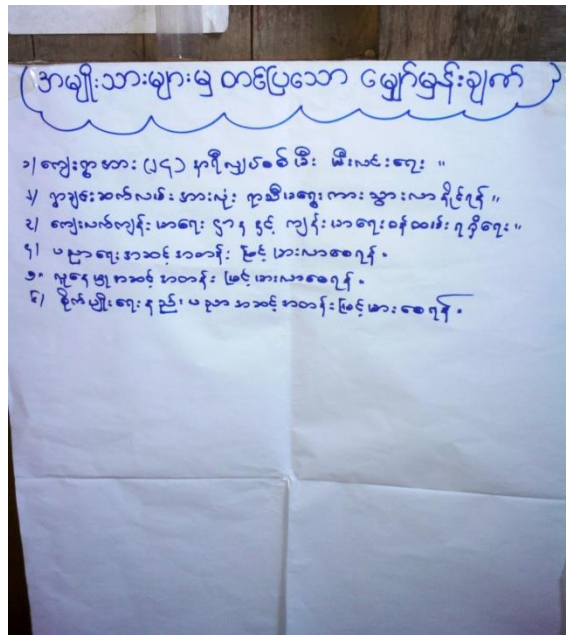 (အမျိုးသားများမှ တင်ပြသော မျှော်မှန်းချက်)
၁/ ကျေးရွာအား (၂၄) နာရီလျှပ်စစ်မီး မီးလင်းရေး ။
၂/ ရွာချင်းဆက်လမ်းအားလုံး ရာသီမရွေးကားသွားလာနိုင်ရန် ။
၃/ ကျေးလက်ကျန်းမာရေး ဌာန နှင့် ကျန်းမာရေးဝန်ထမ်း ရရှိရေး ။
၄/ ပညာရေးအဆင့်အတန်း မြင့်မားလာစေရန် ။
၅။ လူနေမှုအဆင့်အတန်း မြင့်မားလာစေရန် ။
၆/ စိုက်ပျိုးရေးနည်းပညာအဆင့်အတန်းမြင့်မားစေရန် ။